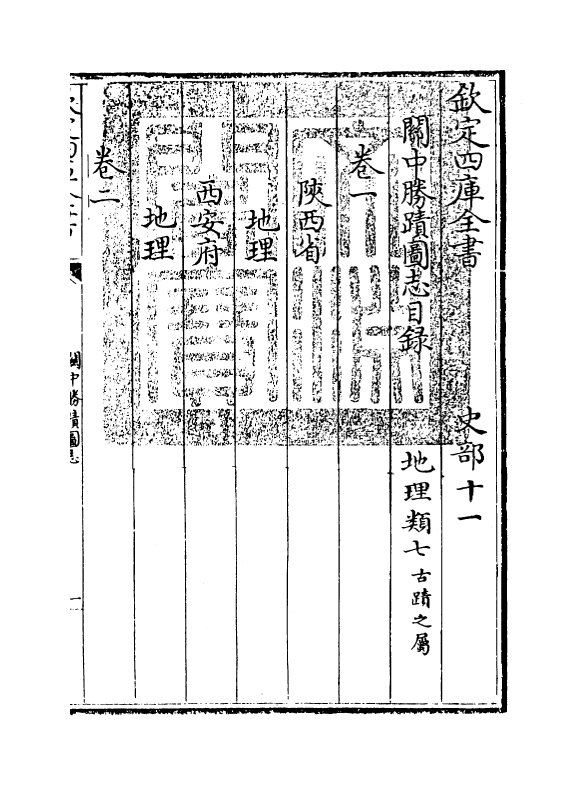 欽定四庫全書　史部十一
關中勝蹟圖志目録　地理類七古蹟之屬
卷一
陜西省
地理
西安府
地理
卷二
關中勝蹟圖志
一